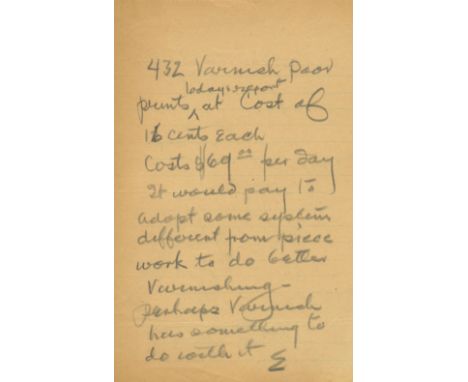 432 Varnish poor
todays report
prints ^ at Cost of
16 cents Each
Costs $69.00 per day
It would pay to
adopt some system
different from piece
work to do better
Varnishing -
perhaps Varnish
has something to
do with it E